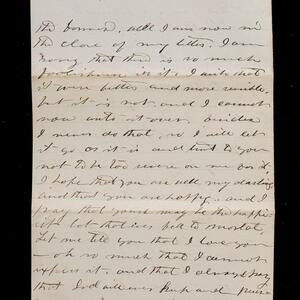 the bound, well I am now in
the close of my letter. I am
sorry that there is so much
foolishness in it. I wish that
it were better and more sensible.
but it is not and I cannot
now write it over, besides
I never do that, so I will let
it go as it is and trust to you
not to be too severe on me for it.
I hope that you are well my darling
and that you are happy - and I
pray that yours may be the happi-
est lot that ever fell to mortal.
Let me tell you that I love you
- oh so much that I cannot
express it. and that I always pray
that God will ever keep and